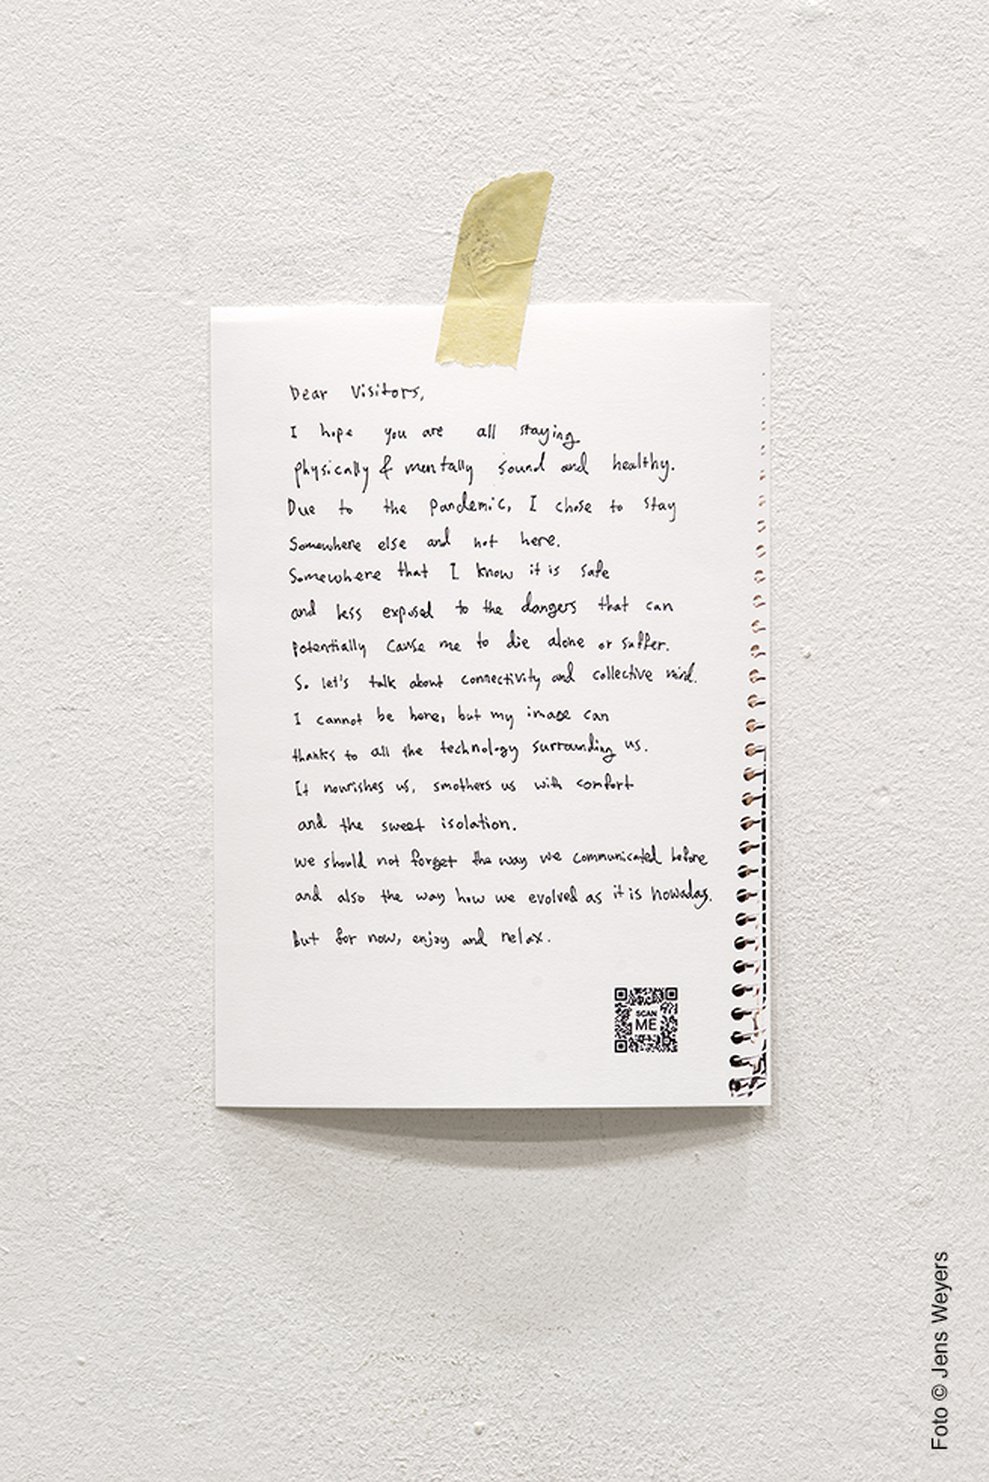 Dear Visitors,
I hope you are all staying
physically & mentally sound and healthy.
Due to the pandemic, I chose to stay
Somewhere else and not here.
Somewhere that I know it is safe
and less exposed to the dangers that can
potentially cause me to die alone or suffer.
So let's talk about connectivity and collective mind.
I cannot be here, but my image can
thanks to all the technology surrounding us.
It nourishes us, smothers us with comfort
and the sweet isolation.
we should not forget the way we communicated before
and also the way how we evolved as it is nowadays.
But for now, enjoy and relax.
SCAN
ME
Foto © Jens Weyers